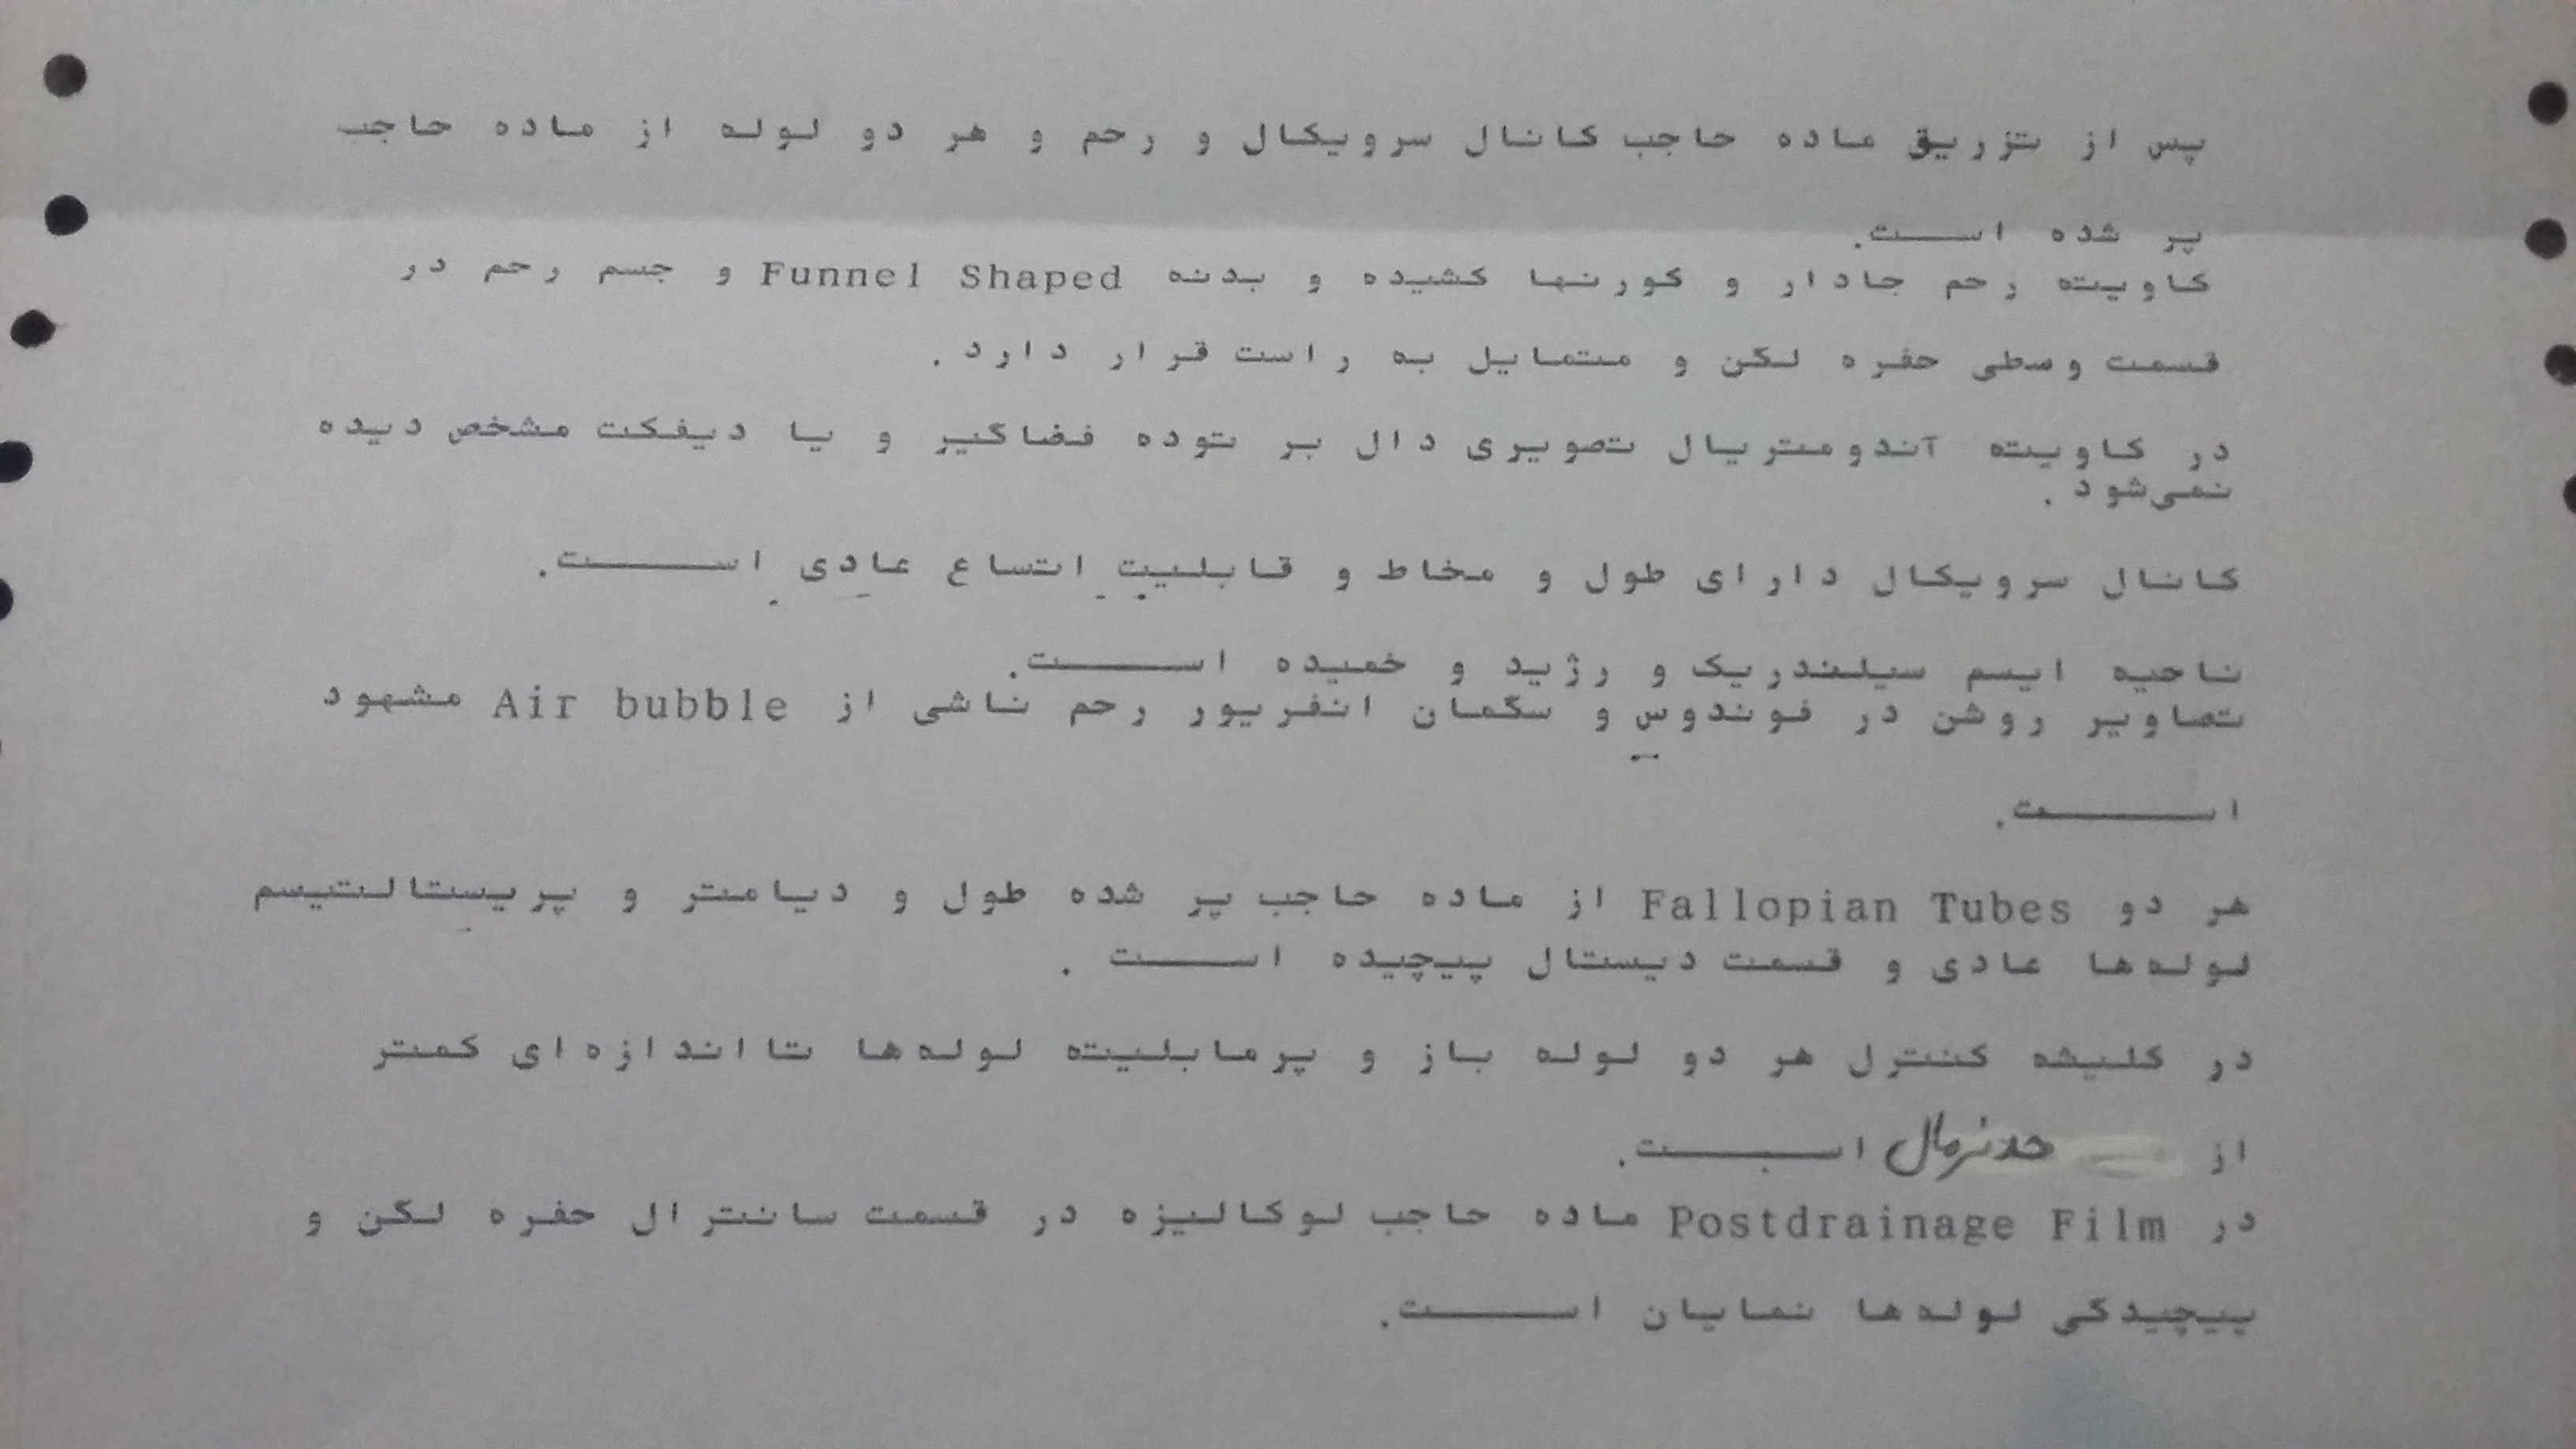 پس از تزریق ماده حاجب کانال سرویکال و رحم و هر دو لوله از ماده حاجب
پر شده است.
کاویته رحم جادار و کورنها کشیده و بدنه Funnel Shaped و جسم رحم در
قسمت وسطی حفره لگن و متمایل به راست قرار دارد.
در کاویته آندومتریال تصویری دال بر توده فضاگیر و یا دیفکت مشخص دیده
نمی‌شود.
کانال سرویکال دارای طول و مخاط و قابلیت اتساع عادی است.
ناحیه ایسم سیلندریک و رژید و خمیده است.
تصاویر روشن در فوندوس و سگمان انفریور رحم ناشی از Air bubble مشهود
است.
هر دو Fallopian Tubes از ماده حاجب پر شده طول و دیامتر و پریستالتیسم
لوله‌ها عادی و قسمت دیستال پیچیده است.
در کلیشه کنترل هر دو لوله باز و پرمابلیته لوله‌ها تا اندازه‌ای کمتر
از حد نرمال است.
در Postdrainage Film ماده حاجب لوکالیزه در قسمت سانترال حفره لگن و
پیچیدگی لوله‌ها نمایان است.